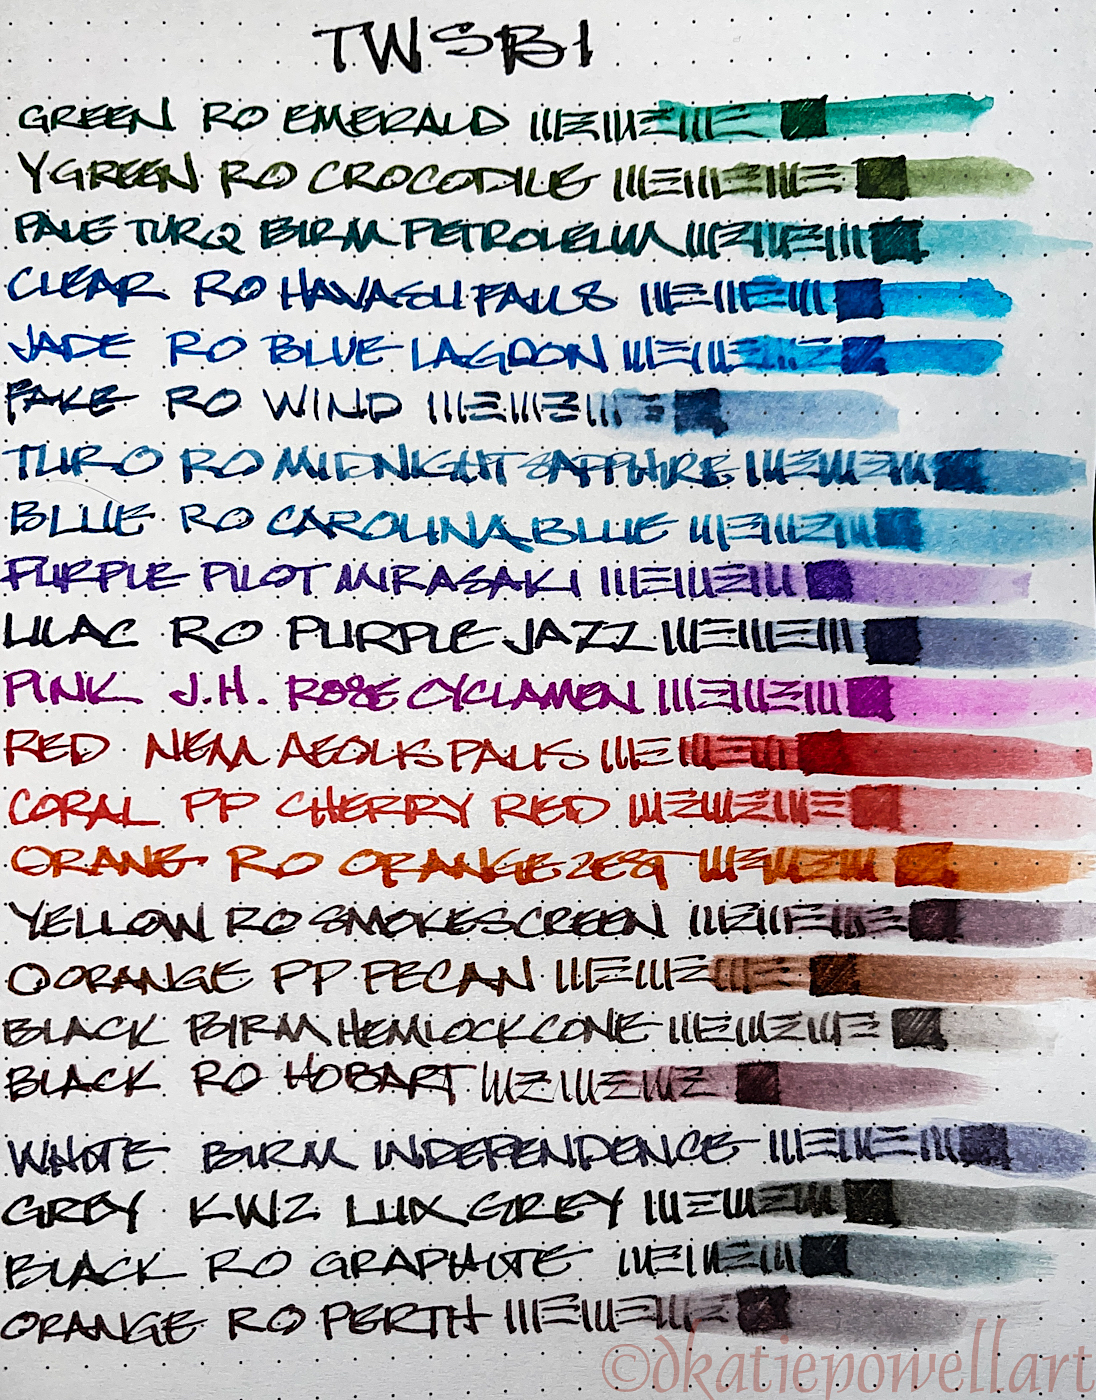 TWSBI
GREEN RO EMERALD
YGREEN RO CROCODILE
PALE TURQ BIRM PETROLEUM
CLEAR RO HAVASU FALLS
JADE RO BLUE LAGOON
FAKE RO WIND
TURQ RO MIDNIGHT SAPPHIRE
BLUE RO CAROLINA BLUE
PURPLE PILOT MURASAKI
LILAC RO PURPLE JAZZ
PINK J.H. ROSE CYCLAMEN
RED NEM AEOLIS PALIS
CORAL PP CHERRY RED
ORANG RO ORANGE ZEST
YELLOW RO SMOKESCREEN
OORANGE PP PECAN
BLACK BIRM HEMLOCK CONE
BLACK RO HOBART
WHITE BIRM INDEPENDENCE
GREY KWZ LUX GREY
BLACK RO GRAPHITE
ORANGE RO PERTH
©dkatiepowellart